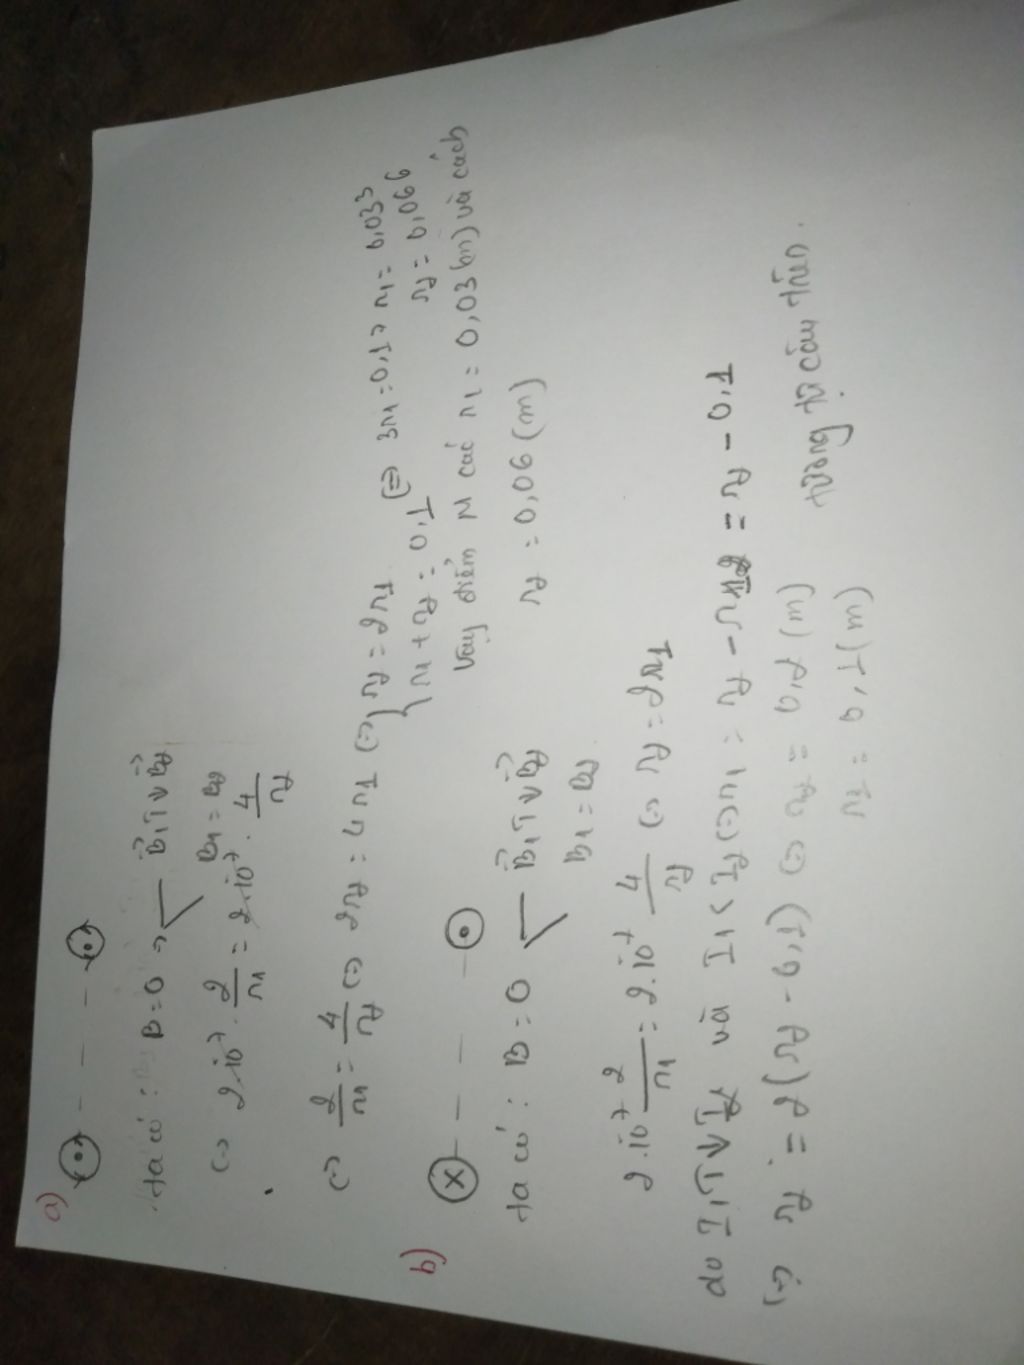 a) ⊙ - - - ⊙
ta có: B = 0 => B₁ ↑↓ B₂
B₁ = B₂
(=) 2.10⁻⁷. 2/r₁ = 2.10⁻⁷. 4/r₂
(=) 2/r₁ = 4/r₂ (=) 2r₂ = 4r₁ (=) { r₂ = 2r₁
r₁ + r₂ = 0,1 (=) 3r₁ = 0,1 => r₁ = 0,033
r₂ = 0,066
Vậy điểm N các r₁ = 0,03 (m) và cách
r₂ = 0,06 (m)
b) ⊗ - - - ⊙
ta có: B = 0 B₁ ↑↓ B₂
B₁ = B₂
2.10⁻⁷ 2/r₁ = 2.10⁻⁷ 4/r₂ (=) r₂ = 2r₁
do I₁ ↑↓ I₂ và I₁ < I₂ (=) r₁ = r₂ - 0,1
(=) r₂ = 2(r₂ - 0,1) (=) r₂ = 0,2 (m)
r₁ = 0,1 (m)
tương tự câu trên.